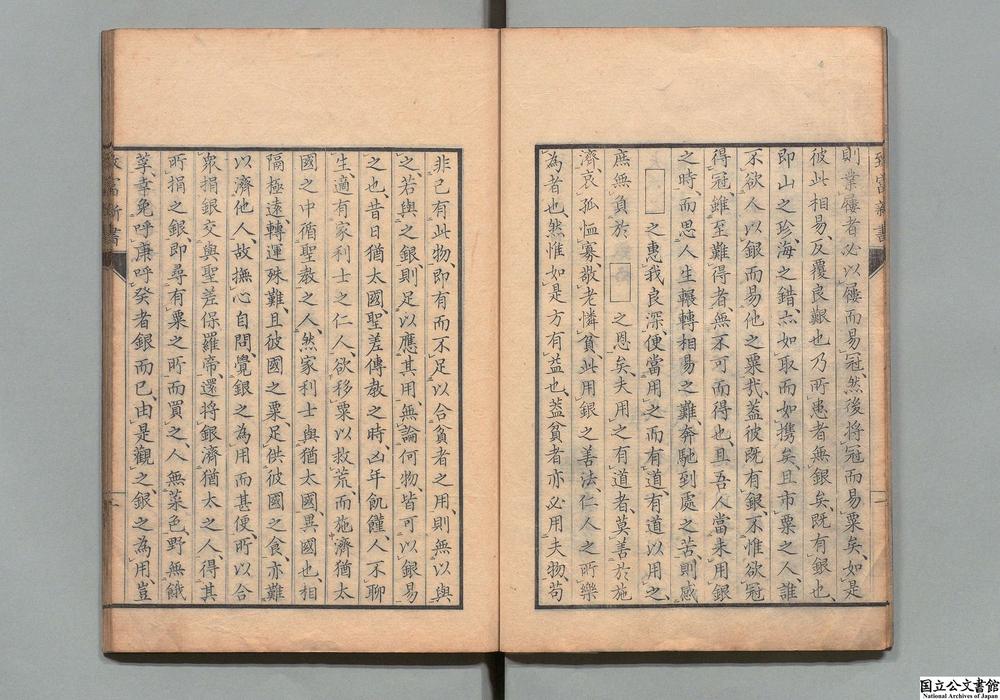 致富新書
則業屨者必以屨而易冠、然後將冠而易粟矣、如是
彼此相易、反覆良艱也、乃所患者無銀矣、既有銀也、
即山之珍、海之錯、亦如取而如携矣、且市粟之人、誰
不欲人以銀而易他之粟哉、蓋彼既有銀、不惟欲冠
得冠、雖至難得者、無不可而得也、且吾人當未用銀
之時、而思人生輾轉相易之難、奔馳到處之苦、則感
之惠我良深、便當用之而有道、有道以用之、
庶無負於 之恩矣、夫用之有道者、莫善於施
濟、哀孤恤寡、敬老憐貧、此用銀之善法、仁人之所樂
為者也、然惟如是方有益也、蓋貧者亦必用夫物、苟
非已有此物、即有而不足以合貧者之用、則無以與
之、若與之銀、則足以應其用、無論何物、皆可以銀易
之也、昔日猶太國聖差傳教之時、凶年飢饉、人不聊
生、適有家利士之仁人、欲移粟以救荒、而施濟猶太
國之中循聖教之人、然家利士與猶太國異國也、相
隔極遠、轉運殊難、且彼國之粟、足供彼國之食、亦難
以濟他人、故撫心自問、覺銀之為用而甚便、所以合
眾捐銀交與聖差保羅帝、還將銀濟猶太之人、得其
所捐之銀、即尋有粟之所而買之、人無菜色、野無餓
莩、幸免呼庚呼癸者、銀而已、由是觀之、銀之為用、豈
致富新書
国立公文書館
National Archives of Japan